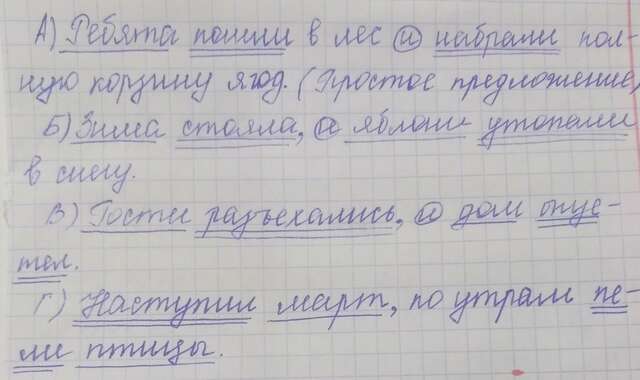 А) Ребята пошли в лес и набрали пол-
ную корзину ягод. (Простое предложение)
Б) Зима стояла, а яблони утопали
в снегу.
В) Гости разъехались, и дом опус-
тел.
Г) Наступил март, по утрам пе-
ли птицы.